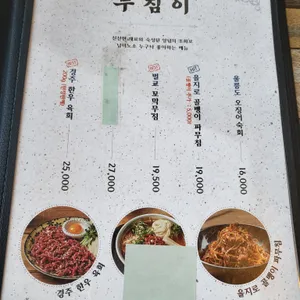 무침이
신선한 재료와 숙성된 양념의 조화로
남녀노소 누구나 좋아하는 메뉴
경주 한우 육회
25,000
27,000
벌교 꼬막무침
19,500
을지로 골뱅이 파무침
19,000
울릉도 오징어숙회
16,000
경주 한우 육회
을지로 골뱅이 파무침